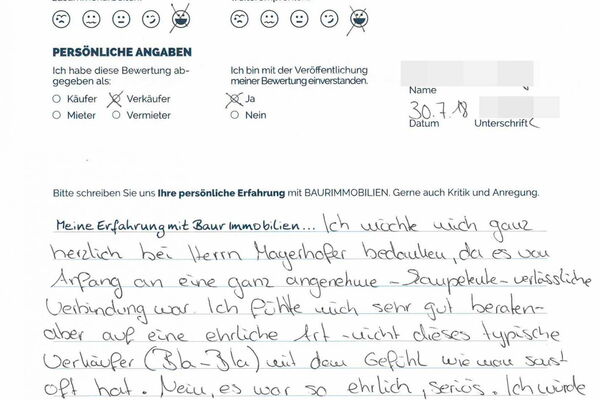 PERSÖNLICHE ANGABEN
Ich habe diese Bewertung ab-
gegeben als:
Käufer Verkäufer
Mieter Vermieter
Ich bin mit der Veröffentlichung
meiner Bewertung einverstanden.
Ja
Nein
Name
30.7.18
Datum Unterschrift
Bitte schreiben Sie uns Ihre persönliche Erfahrung mit BAURIMMOBILIEN. Gerne auch Kritik und Anregung.
Meine Erfahrung mit Baur Immobilien... Ich möchte mich ganz
herzlich bei Herrn Mayerhofer bedanken, da es von
Anfang an eine ganz angenehme - - verlässliche
Verbindung war. Ich fühlte mich sehr gut beraten-
aber auf eine ehrliche Art - nicht dieses typische
Verkäufer (Bla-Bla) mit dem Gefühl wie man sonst
oft hat. Nein, es war so ehrlich, seriös. Ich würde